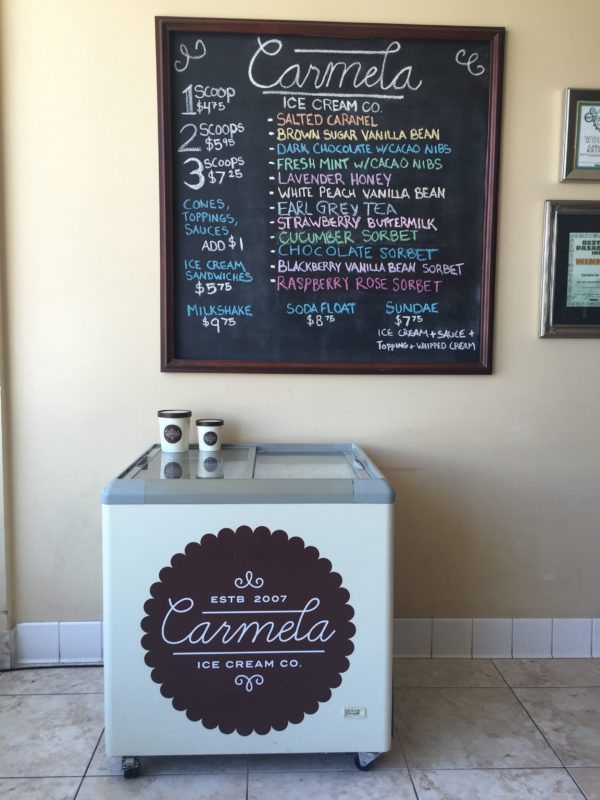 Carmela
ICE CREAM CO.
1 SCOOP
$4.75
2 SCOOPS
$5.95
3 SCOOPS
$7.25
CONES,
TOPPINGS,
SAUCES,
ADD $1
ICE CREAM
SANDWICHES
$5.75
- SALTED CARAMEL
- BROWN SUGAR VANILLA BEAN
- DARK CHOCOLATE W/CACAO NIBS
- FRESH MINT W/CACAO NIBS
- LAVENDER HONEY
- WHITE PEACH VANILLA BEAN
- EARL GREY TEA
- STRAWBERRY BUTTERMILK
- CUCUMBER SORBET
- CHOCOLATE SORBET
- BLACKBERRY VANILLA BEAN SORBET
- RASPBERRY ROSE SORBET
MILKSHAKE
$9.75
SODA FLOAT
$8.75
SUNDAE
$7.75
ICE CREAM + SAUCE +
TOPPING + WHIPPED CREAM
BEST
PASAD
WINN
ESTB 2007
Carmela
ICE CREAM CO.